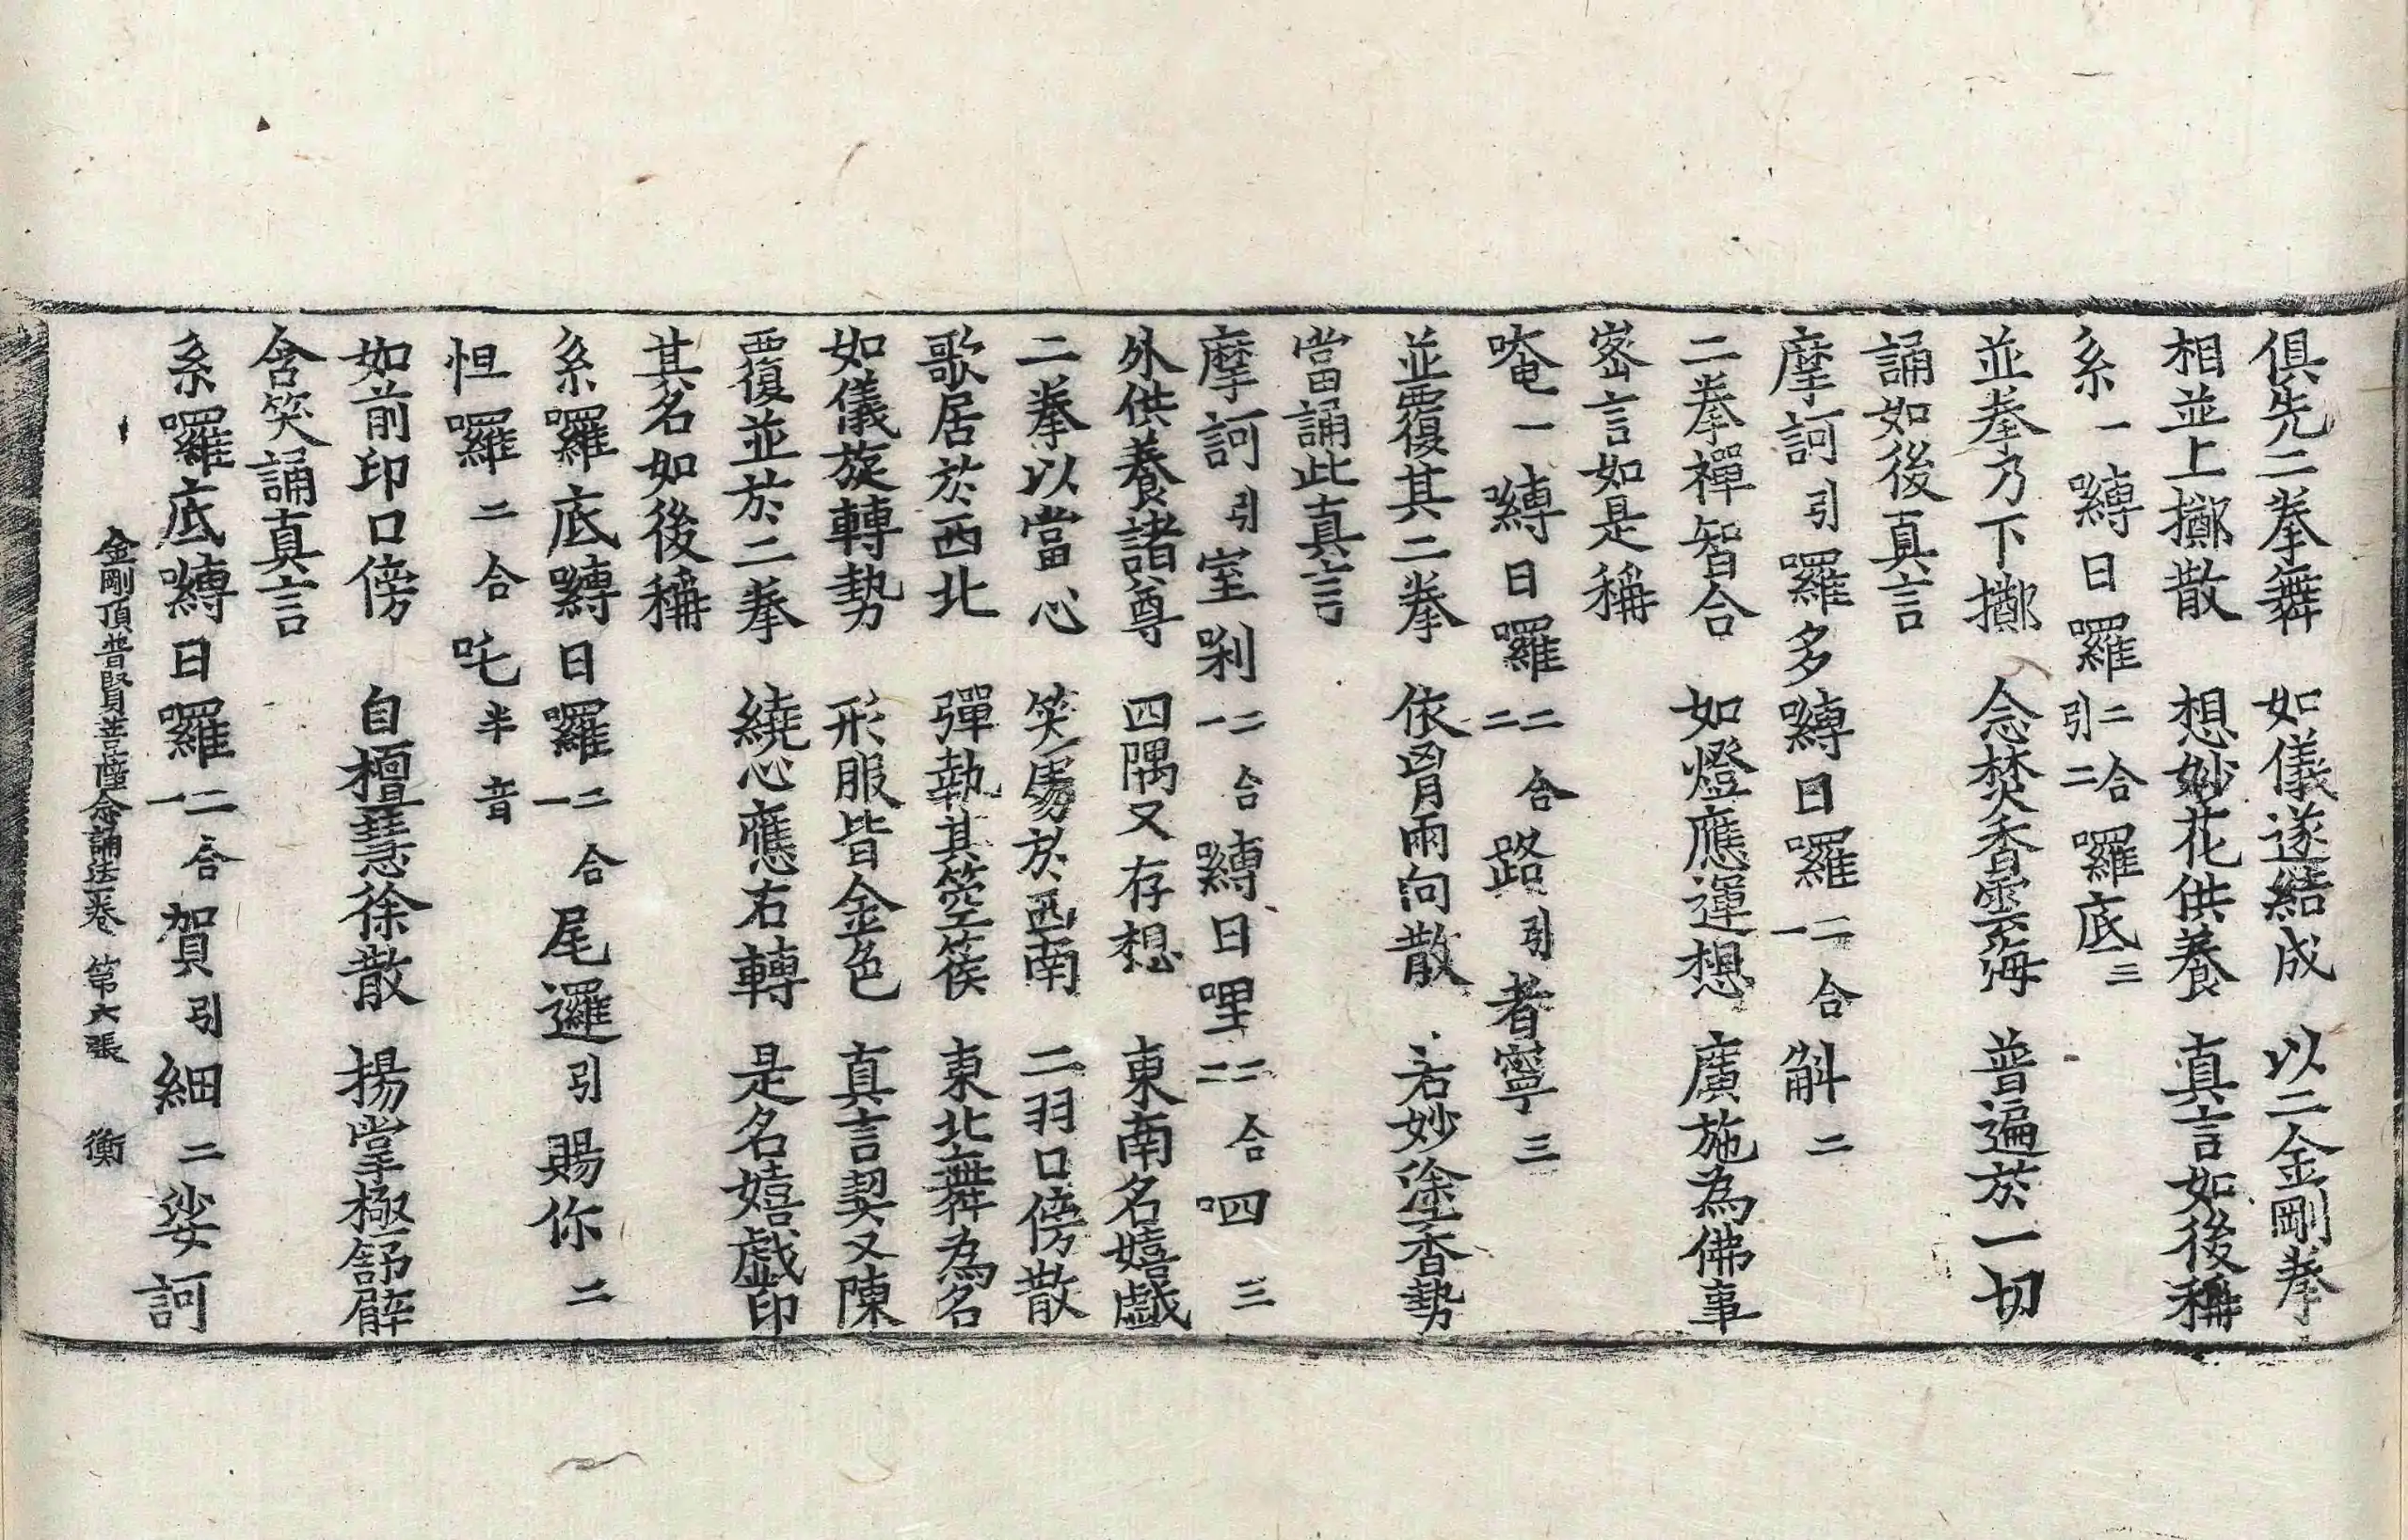 俱先二拳舞　如儀遂結成　以二金剛拳
相並上擲散　想妙花供養　真言如後稱
系一嚩日囉二合引二羅底三
並拳乃下擲　念焚香雲海　普遍於一切
誦如後真言
摩訶引囉多嚩日囉二合一斛二
二拳禪智合　如燈應運想　廣施為佛事
密言如是稱
唵一嚩日囉二合二路引者寧三
並覆其二拳　依胷兩向散　若妙塗香勢
當誦此真言
摩訶引室剎二合一嚩日哩二合二呬三
外供養諸尊　四隅又存想　東南名嬉戲
二拳以當心　笑居於西南　二羽口傍散
歌居於西北　彈執其箜篌　東北舞為名
如儀旋轉勢　形服皆金色　真言契又陳
覆並於二拳　繞心應右轉　是名嬉戲印
其名如後稱
系囉底嚩日囉二合一尾邏引賜你二
怛囉二合吒半音
如前印口傍　自檀慧徐散　揚掌極舒臂
含笑誦真言
系囉底嚩日囉二合一賀引細二娑訶
金剛頂普賢菩薩念誦法一卷　第六張　衡